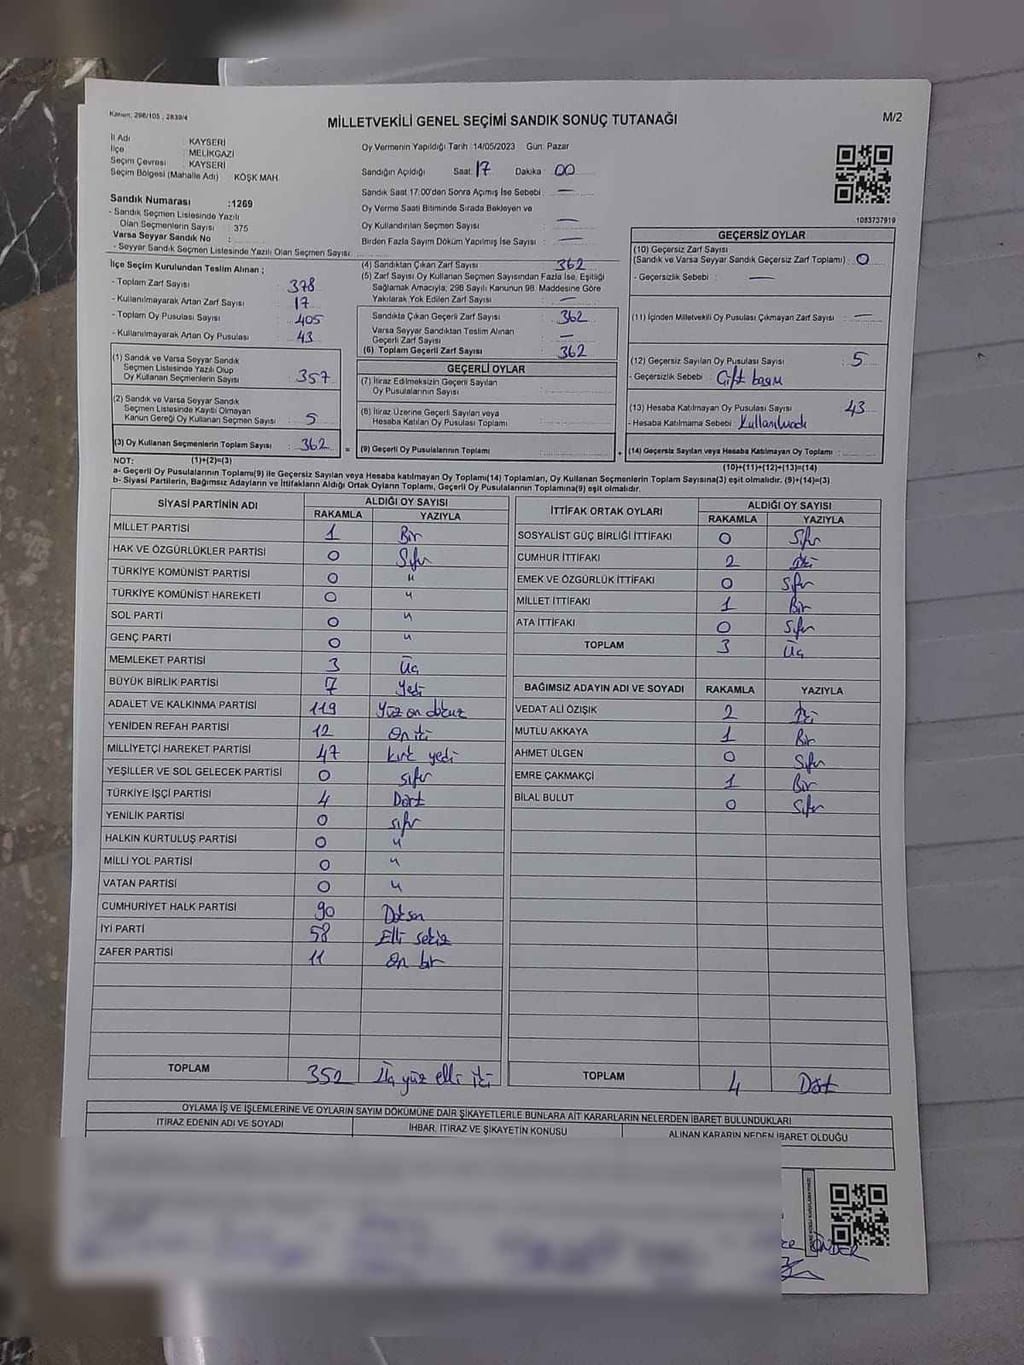 Kanun: 298/105, 2839/4
MİLLETVEKİLİ GENEL SEÇİMİ SANDIK SONUÇ TUTANAĞI
M/2
İl Adı : KAYSERİ
İlçe : MELİKGAZİ
Seçim Çevresi : KAYSERİ
Seçim Bölgesi (Mahalle Adı) : KÖŞK MAH.
Sandık Numarası :1269
- Sandık Seçmen Listesinde Yazılı
Olan Seçmenlerin Sayısı : 375
Varsa Seyyar Sandık No :
- Seyyar Sandık Seçmen Listesinde Yazılı Olan Seçmen Sayısı
Oy Vermenin Yapıldığı Tarih :14/05/2023 Gün: Pazar
Sandığın Açıldığı Saat: 17 Dakika : 00
Sandık Saat 17:00'den Sonra Açımış İse Sebebi : —
Oy Verme Saati Bitiminde Sırada Bekleyen ve
Oy Kullandırılan Seçmen Sayısı : —
Birden Fazla Sayım Döküm Yapılmış İse Sayısı : —
1083737919
İlçe Seçim Kurulundan Teslim Alınan ;
- Toplam Zarf Sayısı : 378
- Kullanılmayarak Artan Zarf Sayısı : 17
- Toplam Oy Pusulası Sayısı : 405
- Kullanılmayarak Artan Oy Pusulası : 43
(1) Sandık ve Varsa Seyyar Sandık
Seçmen Listesinde Yazılı Olup
Oy Kullanan Seçmenlerin Sayısı : 357
(2) Sandık ve Varsa Seyyar Sandık
Seçmen Listesinde Kayıtlı Olmayan
Kanun Gereği Oy Kullanan Seçmen Sayısı : 5
(3) Oy Kullanan Seçmenlerin Toplam Sayısı : 362
(4) Sandıktan Çıkan Zarf Sayısı : 362
(5) Zarf Sayısı Oy Kullanan Seçmen Sayısından Fazla İse, Eşitliği
Sağlamak Amacıyla; 298 Sayılı Kanunun 98. Maddesine Göre
Yakılarak Yok Edilen Zarf Sayısı : —
Sandıkta Çıkan Geçerli Zarf Sayısı : 362
Varsa Seyyar Sandıktan Teslim Alınan
Geçerli Zarf Sayısı : —
(6) Toplam Geçerli Zarf Sayısı : 362
GEÇERLİ OYLAR
(7) İtiraz Edilmeksizin Geçerli Sayılan
Oy Pusulalarının Sayısı :
(8) İtiraz Üzerine Geçerli Sayılan veya
Hesaba Katılan Oy Pusulası Toplamı :
= (9) Geçerli Oy Pusulalarının Toplamı :
GEÇERSİZ OYLAR
(10) Geçersiz Zarf Sayısı
(Sandık ve Varsa Seyyar Sandık Geçersiz Zarf Toplamı) : 0
- Geçersizlik Sebebi : —
(11) İçinden Milletvekili Oy Pusulası Çıkmayan Zarf Sayısı : —
(12) Geçersiz Sayılan Oy Pusulası Sayısı : 5
- Geçersizlik Sebebi : Çift basım
(13) Hesaba Katılmayan Oy Pusulası Sayısı : 43
- Hesaba Katılmama Sebebi : Kullanılmadı
+ (14) Geçersiz Sayılan veya Hesaba Katılmayan Oy Toplamı :
NOT: (1)+(2)=(3)
(10)+(11)+(12)+(13)=(14)
a- Geçerli Oy Pusulalarının Toplamı(9) ile Geçersiz Sayılan veya Hesaba katılmayan Oy Toplamı(14) Toplamları, Oy Kullanan Seçmenlerin Toplam Sayısına(3) eşit olmalıdır. (9)+(14)=(3)
b- Siyasi Partilerin, Bağımsız Adayların ve İttifakların Aldığı Ortak Oyların Toplamı, Geçerli Oy Pusulalarının Toplamına(9) eşit olmalıdır.
SİYASİ PARTİNİN ADI ALDIĞI OY SAYISI
RAKAMLA YAZIYLA
MİLLET PARTİSİ 1 Bir
HAK VE ÖZGÜRLÜKLER PARTİSİ 0 Sıfır
TÜRKİYE KOMÜNİST PARTİSİ 0 "
TÜRKİYE KOMÜNİST HAREKETİ 0 "
SOL PARTİ 0 "
GENÇ PARTİ 0 "
MEMLEKET PARTİSİ 3 Üç
BÜYÜK BİRLİK PARTİSİ 7 Yedi
ADALET VE KALKINMA PARTİSİ 119 Yüz on dokuz
YENİDEN REFAH PARTİSİ 12 On iki
MİLLİYETÇİ HAREKET PARTİSİ 47 kırk yedi
YEŞİLLER VE SOL GELECEK PARTİSİ 0 sıfır
TÜRKİYE İŞÇİ PARTİSİ 4 Dört
YENİLİK PARTİSİ 0 sıfır
HALKIN KURTULUŞ PARTİSİ 0 "
MİLLİ YOL PARTİSİ 0 "
VATAN PARTİSİ 0 "
CUMHURİYET HALK PARTİSİ 90 Doksan
İYİ PARTİ 58 Elli sekiz
ZAFER PARTİSİ 11 On bir
TOPLAM 352 Üç yüz elli iki
İTTİFAK ORTAK OYLARI ALDIĞI OY SAYISI
RAKAMLA YAZIYLA
SOSYALİST GÜÇ BİRLİĞİ İTTİFAKI 0 Sıfır
CUMHUR İTTİFAKI 2 iki
EMEK VE ÖZGÜRLÜK İTTİFAKI 0 Sıfır
MİLLET İTTİFAKI 1 Bir
ATA İTTİFAKI 0 Sıfır
TOPLAM 3 Üç
BAĞIMSIZ ADAYIN ADI VE SOYADI RAKAMLA YAZIYLA
VEDAT ALİ ÖZIŞIK 2 İki
MUTLU AKKAYA 1 Bir
AHMET ÜLGEN 0 Sıfır
EMRE ÇAKMAKÇİ 1 Bir
BİLAL BULUT 0 Sıfır
TOPLAM 4 Dört
OYLAMA İŞ VE İŞLEMLERİNE VE OYLARIN SAYIM DÖKÜMÜNE DAİR ŞİKAYETLERLE BUNLARA AİT KARARLARIN NELERDEN İBARET BULUNDUKLARI
İTİRAZ EDENİN ADI VE SOYADI İHBAR, İTİRAZ VE ŞİKAYETİN KONUSU ALINAN KARARIN NEDEN İBARET OLDUĞU
ÖNDER